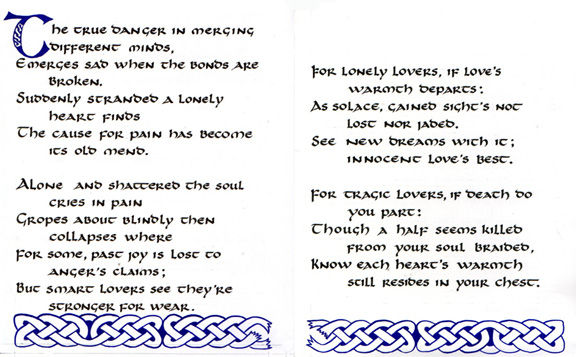 The true danger in merging
different minds,
Emerges sad when the bonds are
broken.
Suddenly stranded a lonely
heart finds
The cause for pain has become
its old mend.
Alone and shattered the soul
cries in pain
Gropes about blindly then
collapses where
For some, past joy is lost to
anger's claims;
But smart lovers see they're
stronger for wear.
For lonely lovers, if love's
warmth departs:
As solace, gained sight's not
lost nor jaded.
See new dreams with it;
innocent love's best.
For tragic lovers, if death do
you part:
Though a half seems killed
from your soul braided,
Know each heart's warmth
still resides in your chest.